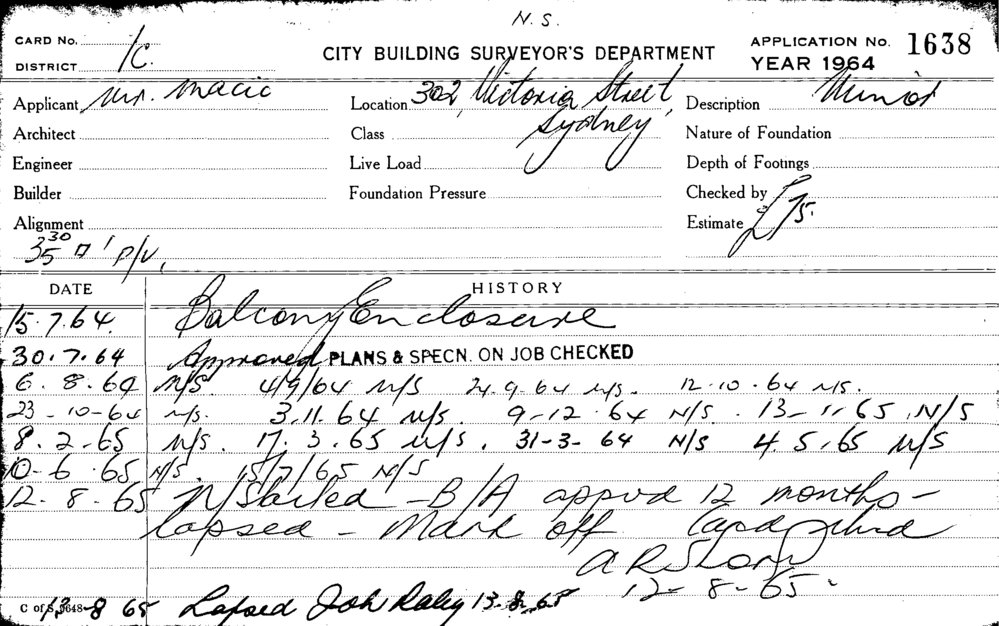 N.S.
CARD No. 1C. CITY BUILDING SURVEYOR'S DEPARTMENT APPLICATION No. 1638
DISTRICT YEAR 1964
Applicant Mr. Macic Location 302 Victoria Street, Description Minor
Architect Class Sydney Nature of Foundation
Engineer Live Load Depth of Footings
Builder Foundation Pressure Checked by
Alignment Estimate £75.
35 30 □' P/V,
DATE HISTORY
15.7.64. Balcony Enclosure
30.7.64 Approved PLANS & SPECN. ON JOB CHECKED
6.8.64 N/S. 4/9/64 N/S 24.9.64 N/S. 12.10.64 N/S.
23-10-64 N/S. 3.11.64 N/S 9-12.64 N/S. 13-1-65 N/S
8.2.65 N/S. 17.3.65 N/S. 31-3-64 N/S 4.5.65 N/S
10-6.65 N/S. 15/7/65 N/S
12-8-65 N/Started - B/A apprvd 12 months -
lapsed - Mark off Card
A R
12-8-65.
C of S 9648 13-8 65 Lapsed Joh Daley 13.8.65